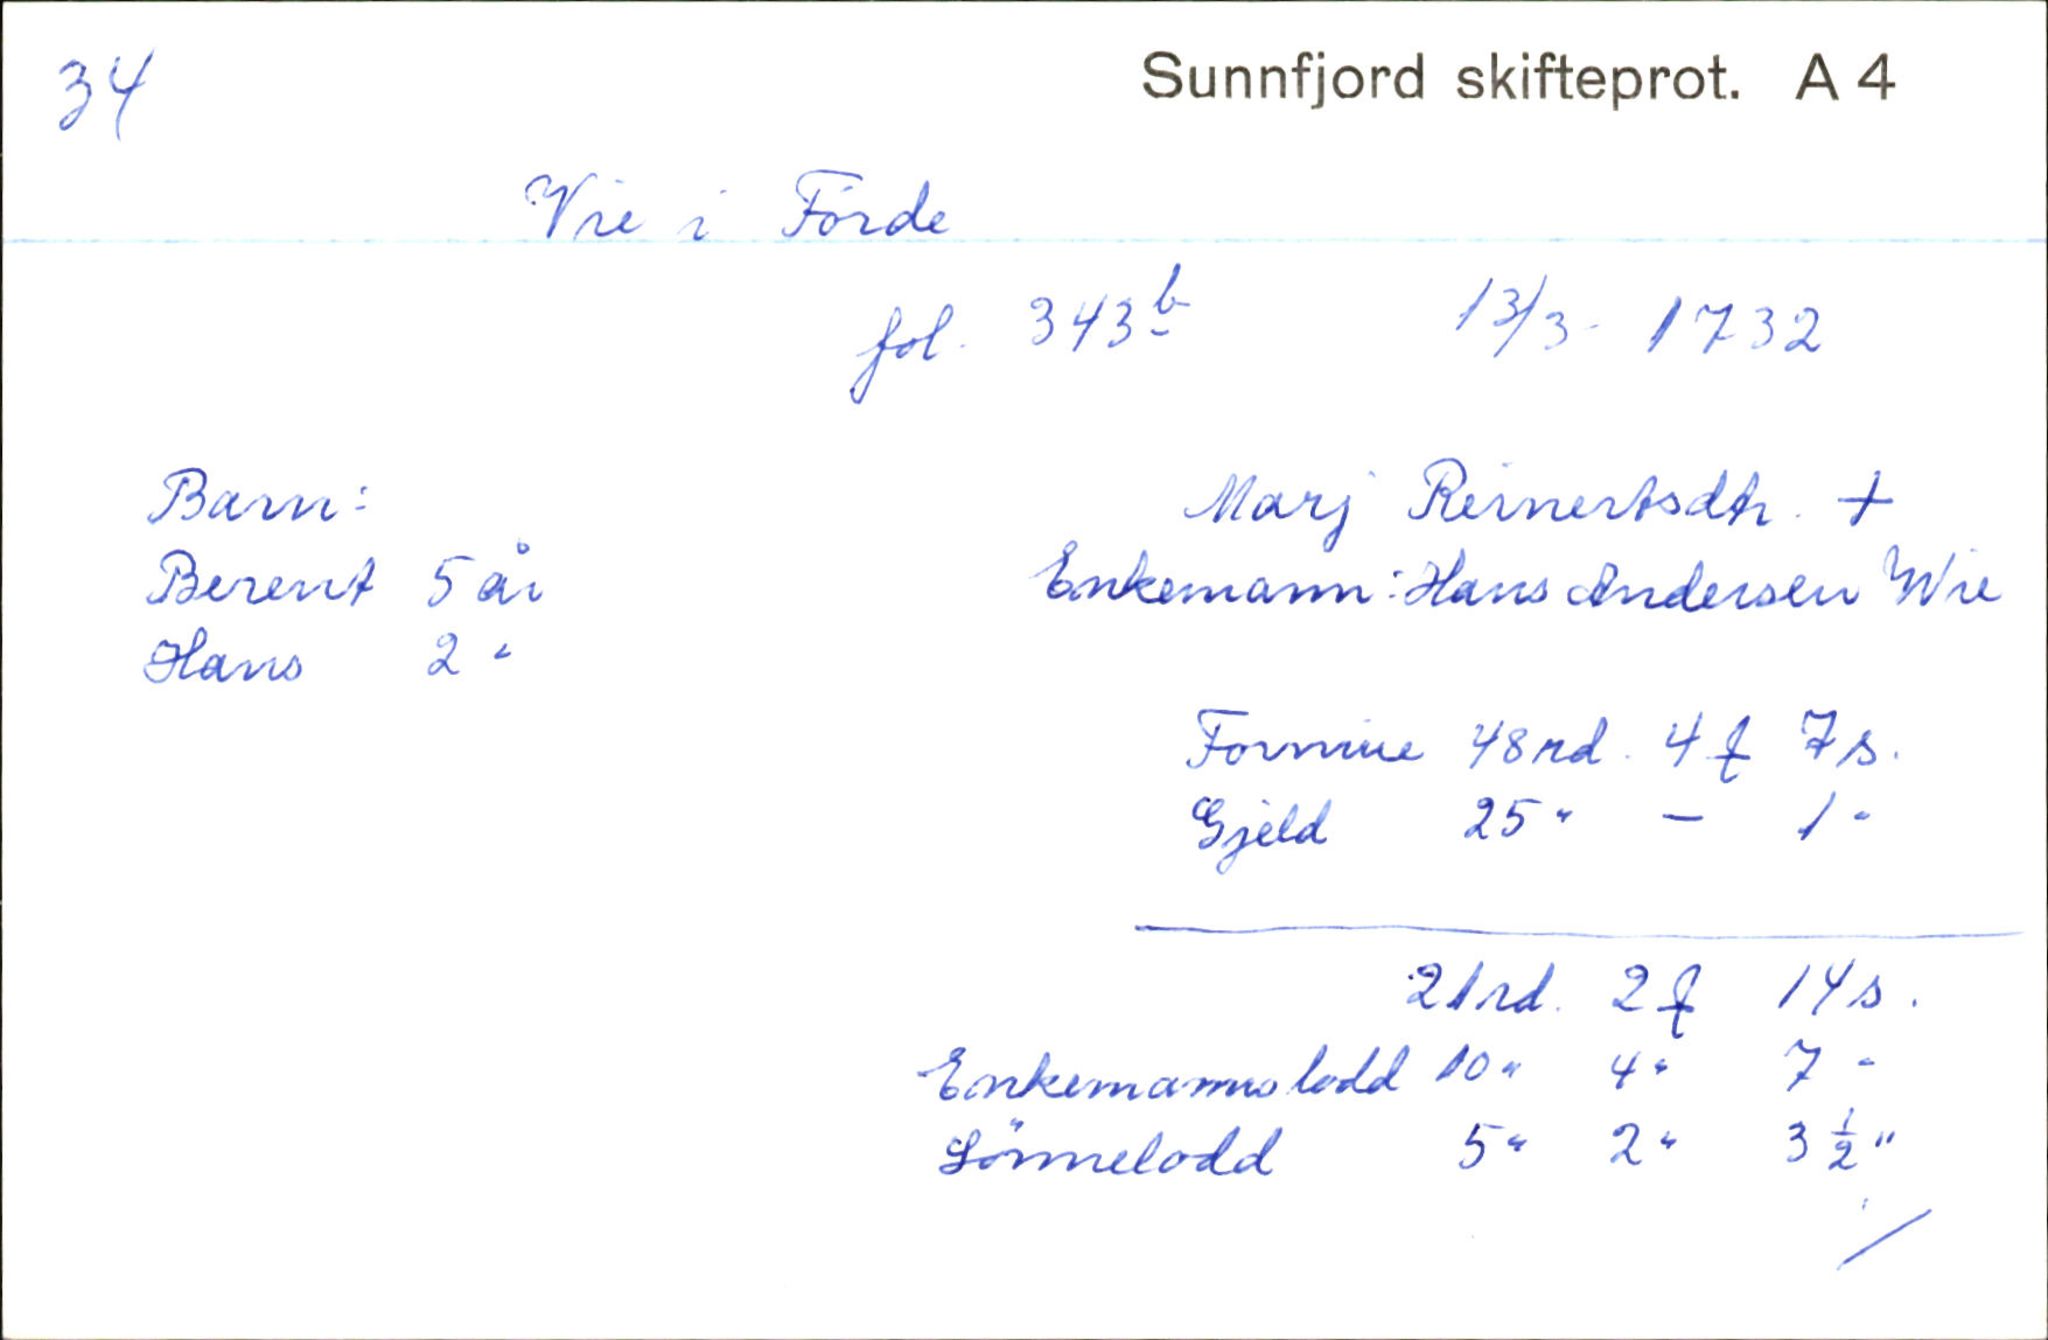 34
Sunnfjord skifteprot. A 4
Vie i Förde
fol. 343b 13/3 - 1732
Barn:
Berent 5 år
Hans 2 "
Marj Reinertsdtr. +
Enkemann: Hans Andersen Wie
Formue 48 rd. 4 ₰ 7 s.
Gjeld 25 " – 1 "
21 rd. 2 ₰ 14 s.
Enkemannslodd 10 " 4 " 7 "
Sönnelodd 5 " 2 " 3 ½ "